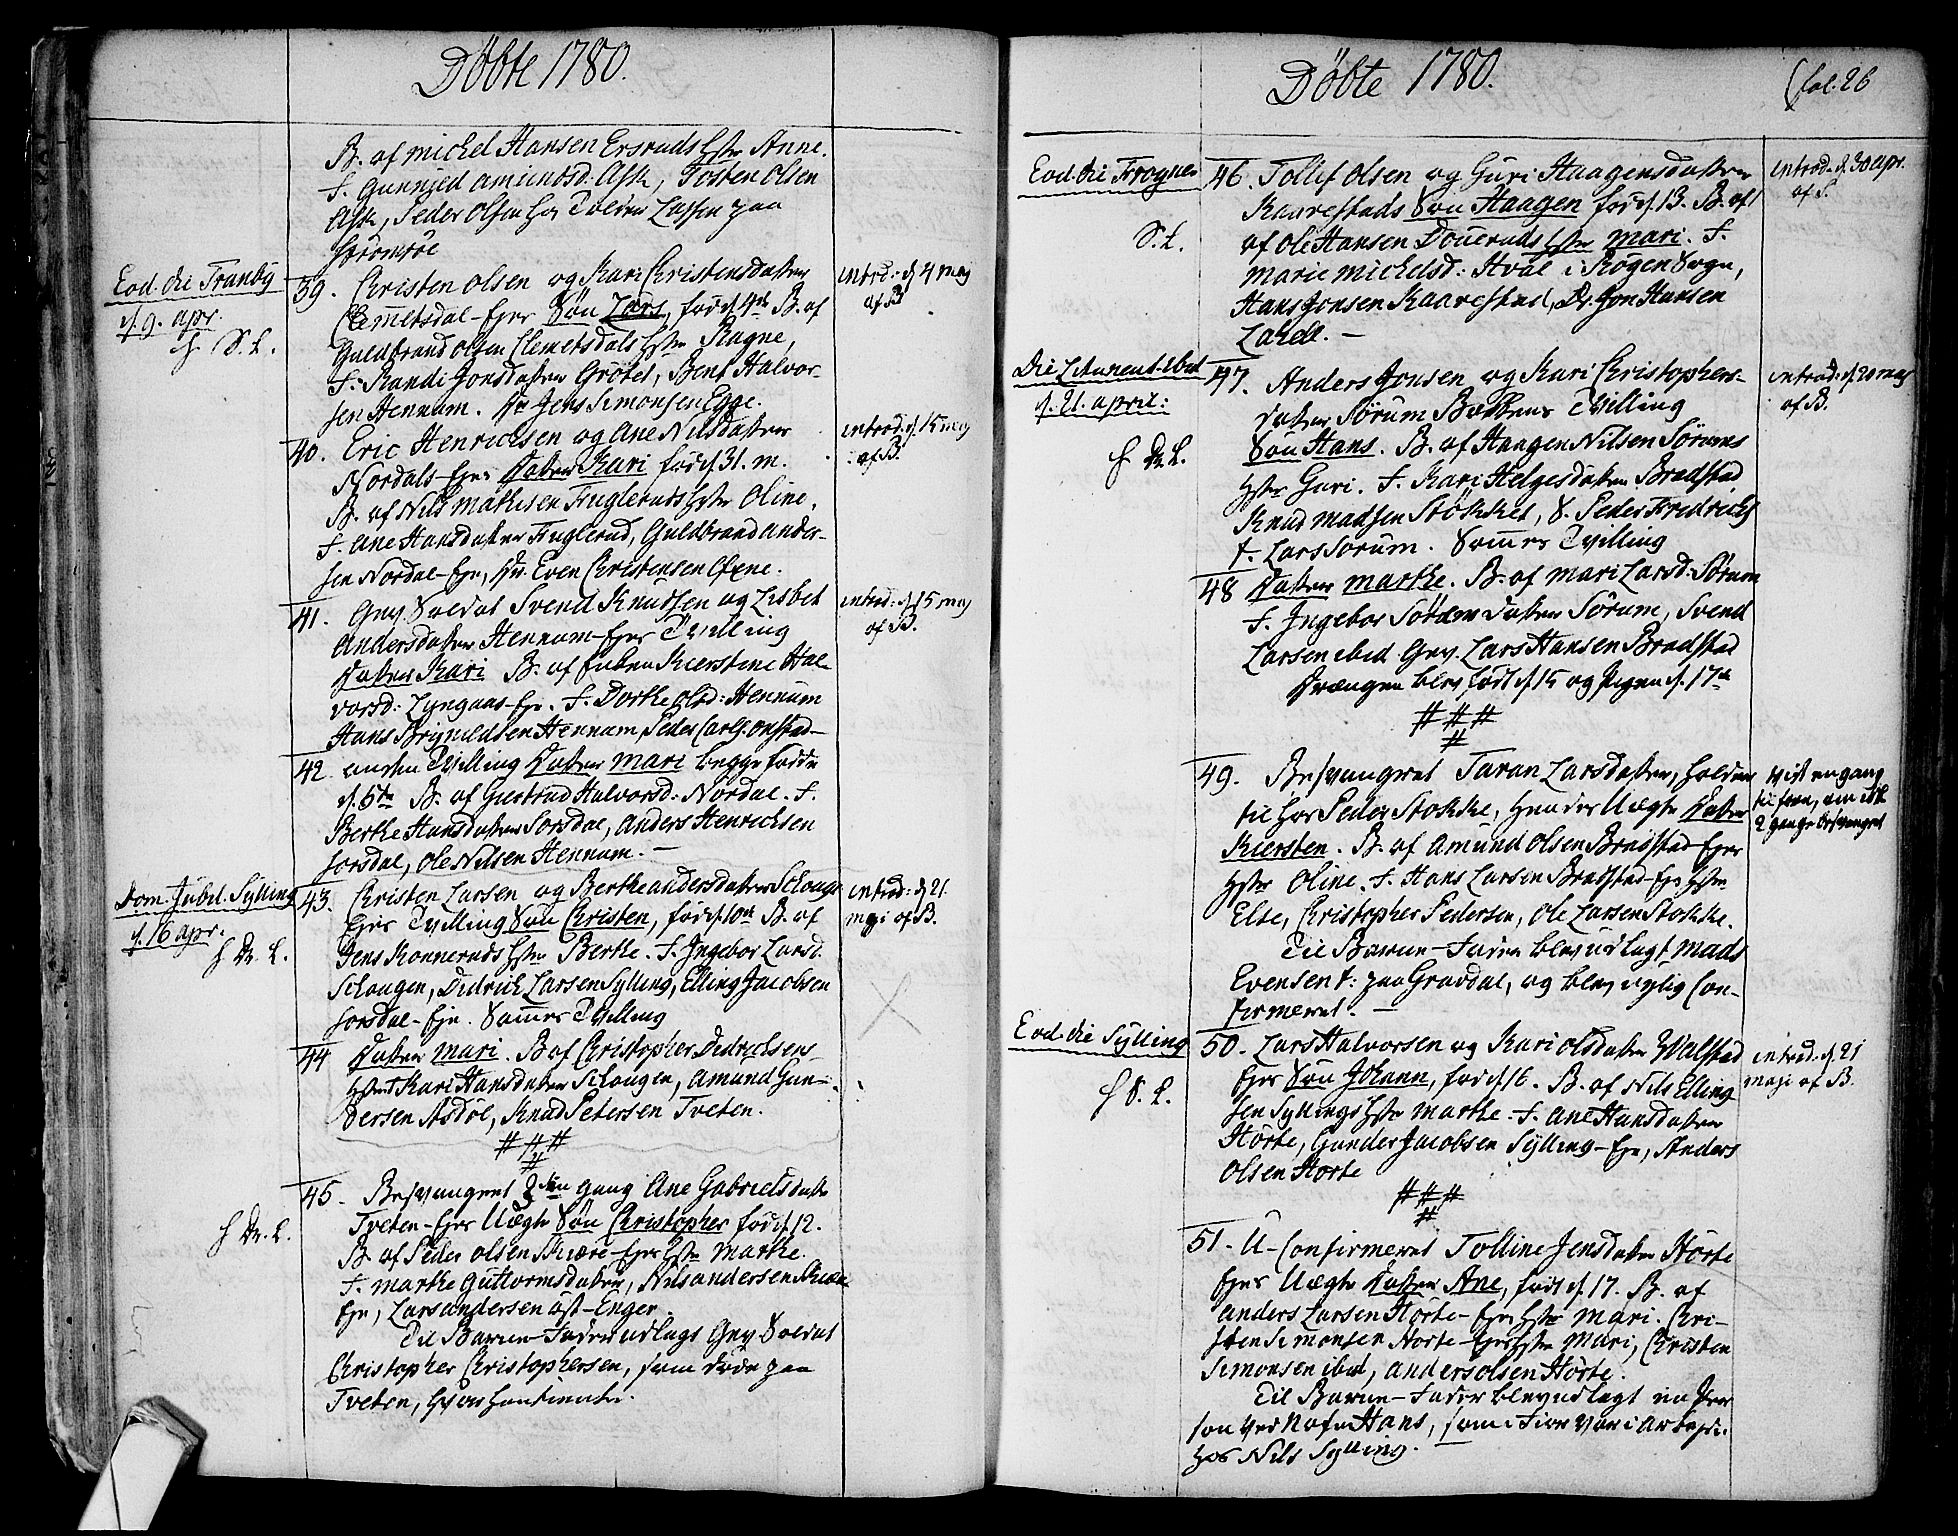 Döbte 1780.
B. af Michel Hansen Ersruds Hstr Anne.
F. Gunnjed Amundsd: Ask, Tosten Olsen
Ask, Peder Olsen hos Lassen paa
Eod. die Tranby
d. 9. apr.
S. L.
39. Christen Olsen og Kari Christensdatter
Clemetsdal-Ejes Søn Lars, fød d. 4de B. af
Guldbrand Olsen Clemetsdals Hstr Ragne,
F. Randi Jonsdatter Grötet, Bent Halvor-
sen Hennum. Jens Simonsen Egge.
introd: d. 4 maj
af B.
40. Eric Henrichsen og Ane Nilsdatter
Nordals-Ejes Datter Kari fød d. 31. m.
B. af Nils Mathisen Fugleruds Hstr Oline.
F. Ane Hansdatter Fuglerud, Guldbrand Ander-
sen Nordal-Eje, Even Christensen
introd. d. 15 maj
af B.
41. Gev. Soldat Svend Knudsen og Lisbet
Andersdatter Hennum-Ejes Tvilling
Datter Kari B. af Enken Kierstine Hal-
vorsd: Lyngaas-Eje. F. Dorthe Olsd: Hennum
Hans Brynildsen Hennum, Peder Carls. Onstad-
introd: d. 15 maj
af B.
42. anden Tvilling Datter Mari begge fødde
d. 6te B. af Giertrud Halvorsd: Nordal. F.
Berthe Hansdatter Sorsdal, Anders Henrichsen
Sorsdal, Ole Nilsen Hennum. —
Dom. Jubil. Sylling
d. 16 apr.
L.
43. Christen Larsen og Berthe Andersdatter Schouge
Ejes Tvilling Søn Christen, fød d. 10de B. af
Jens Konneruds Hstr Berthe. F. Ingebor Larsd.
Schougen, Didrich Larsen Sylling, Elling Jacobsen
Sorsdal-Eje. Sammes Tvilling
introd: d. 21.
maji af B.
44 Datter Mari. B. af Christopher Didrichsens
Hstr Kari Hansdatter Schougen, Amund Gun-
dersen Asdøl, Knud Petersen Tveten.
# # #
#
L.
45. Besvangret gang Ane Gabrielsdatter
Tveten-Ejes Uægte Søn Christopher fød d. 12.
B. af Peder Olsen Skiære-Ejes Hstr Marthe.
F. Marthe Guttormsdatter, Nils Andersen Skiære
Eje, Lars Andersen Ust-Enger.
Til Barne-Fader udlagt Gev. Soldat
Christopher Christophersen, som døde paa
Tveten, hvor han tiente.
Döbte 1780.
(fol. 26
Eod. die Frogner
S. L.
46. Tollef Olsen og Guri Haagensdatter
Kaarestads Søn Haagen fød d. 13. B. af
af Ole Hansen Doueruds Hstr Mari. F.
Marie Michelsd: Hval i Røgen Sogn,
Hans Jonsen Kaarestad, Dr. Jon Hansen
Lahell. —
introd. d. 30 apr.
af S.
Die
d. 21. april:
L.
47. Anders Jonsen og Kari Christophers-
datter Sørum Tvilling
Søn Hans. B. af Haagen Nilsen Sørums
Hstr Guri. F. Kari Helgesdatter Bradstad
Knud Madsen Stökket, S. Peder Fredrichs
f. Lars Sorum. Sammes Tvilling
introd: d. 20 maj
af B.
48 Datter Marthe. B. af Mari Larsd: Sörum
F. Ingebor datter Sörum, Svend
Larsen ibid. Gev. Lars Hansen Bradstad
Drengen blev født d. 15 og Pigen d. 17de
# # #
#
49. Besvangret Taran Larsdatter, holden
til hos Peder Stokke, hendes Uægte Datter
Kiersten. B. af Amund Olsen Bradstad Ejes
Hstr Oline. F. Hans Larsen Bradstad-Eje Hstr
Else, Christopher Pedersen, Ole Larsen Stokke.
Til Barne-Fader blev udlagt Mads
Evensen f: paa Gravdal, og blev nylig Con-
firmeret. —
vist en gang
til
2 gange besvangret
Eod. die Sylling
S. L.
50. Lars Halvorsen og Kari Olsdatter Walstad
Ejes Søn Johann, fød d. 16. B. af Nils Elling
sen Syllings Hstr Marthe. F. Ane Hansdatter
Hörte, Gunder Jacobsen Sylling-Eje, Anders
Olsen Horte
introd. d. 21
maji af B.
# # #
#
51. U-Confirmeret Tolline Jensdatter Hörte
Ejes Uægte Datter Ane, født d. 17. B. af
Anders Larsen Hörte-Ejes Hstr Mari. Chri-
sten Simonsen Horte-Ejes Hstr Mari, Christen
Simonsen ibid, Anders Olsen Hörte.
Til Barne-Fader blev udlagt en Per
son ved Nafn Hans, som i Fior var i Arbeyde
hos Nils Sylling.